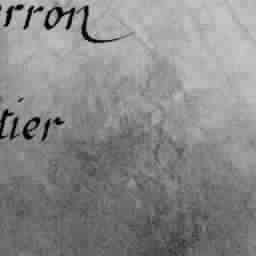 erron
tier